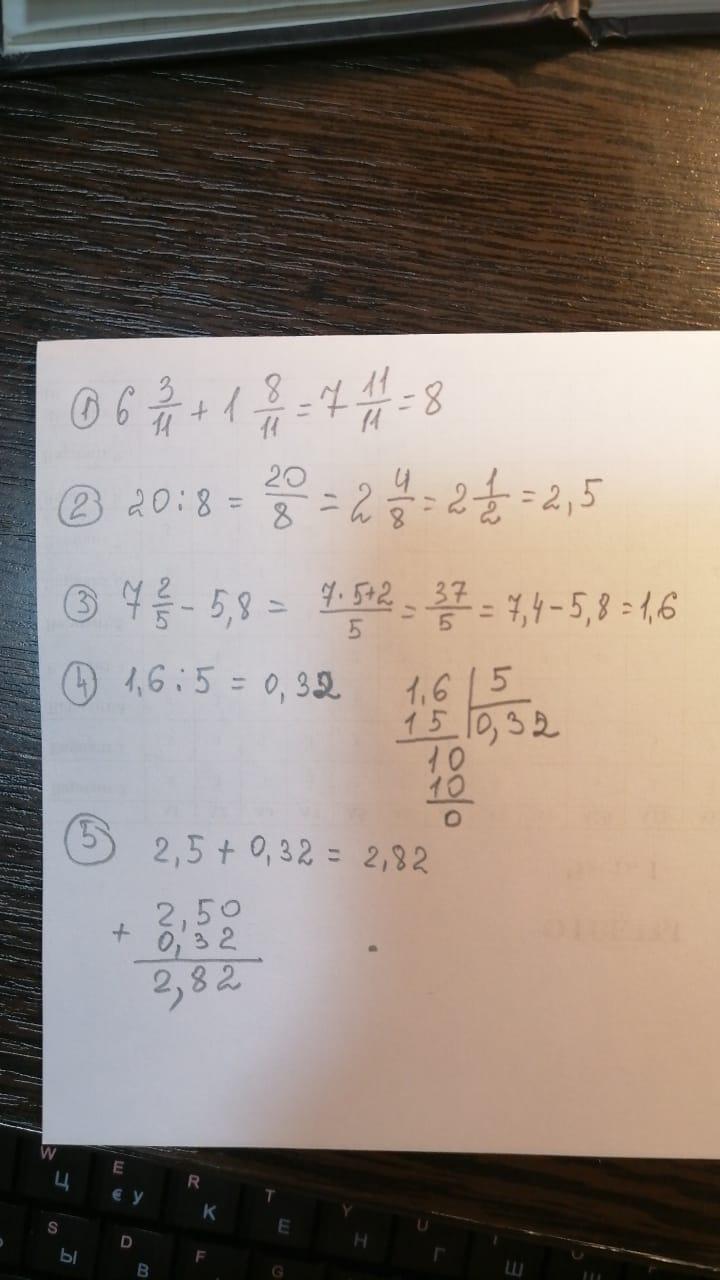 ① 6 3/11 + 1 8/11 = 7 11/11 = 8
② 20 : 8 = 20/8 = 2 4/8 = 2 1/2 = 2,5
③ 7 2/5 - 5,8 = 7·5+2/5 = 37/5 = 7,4 - 5,8 = 1,6
④ 1,6 : 5 = 0,32
1,6 | 5
15 | 0,32
10
10
0
⑤ 2,5 + 0,32 = 2,82
+ 2,50
0,32
2,82
W E R T Y U
Ц € У К Е Н Г Ш
S D F G
Ы В